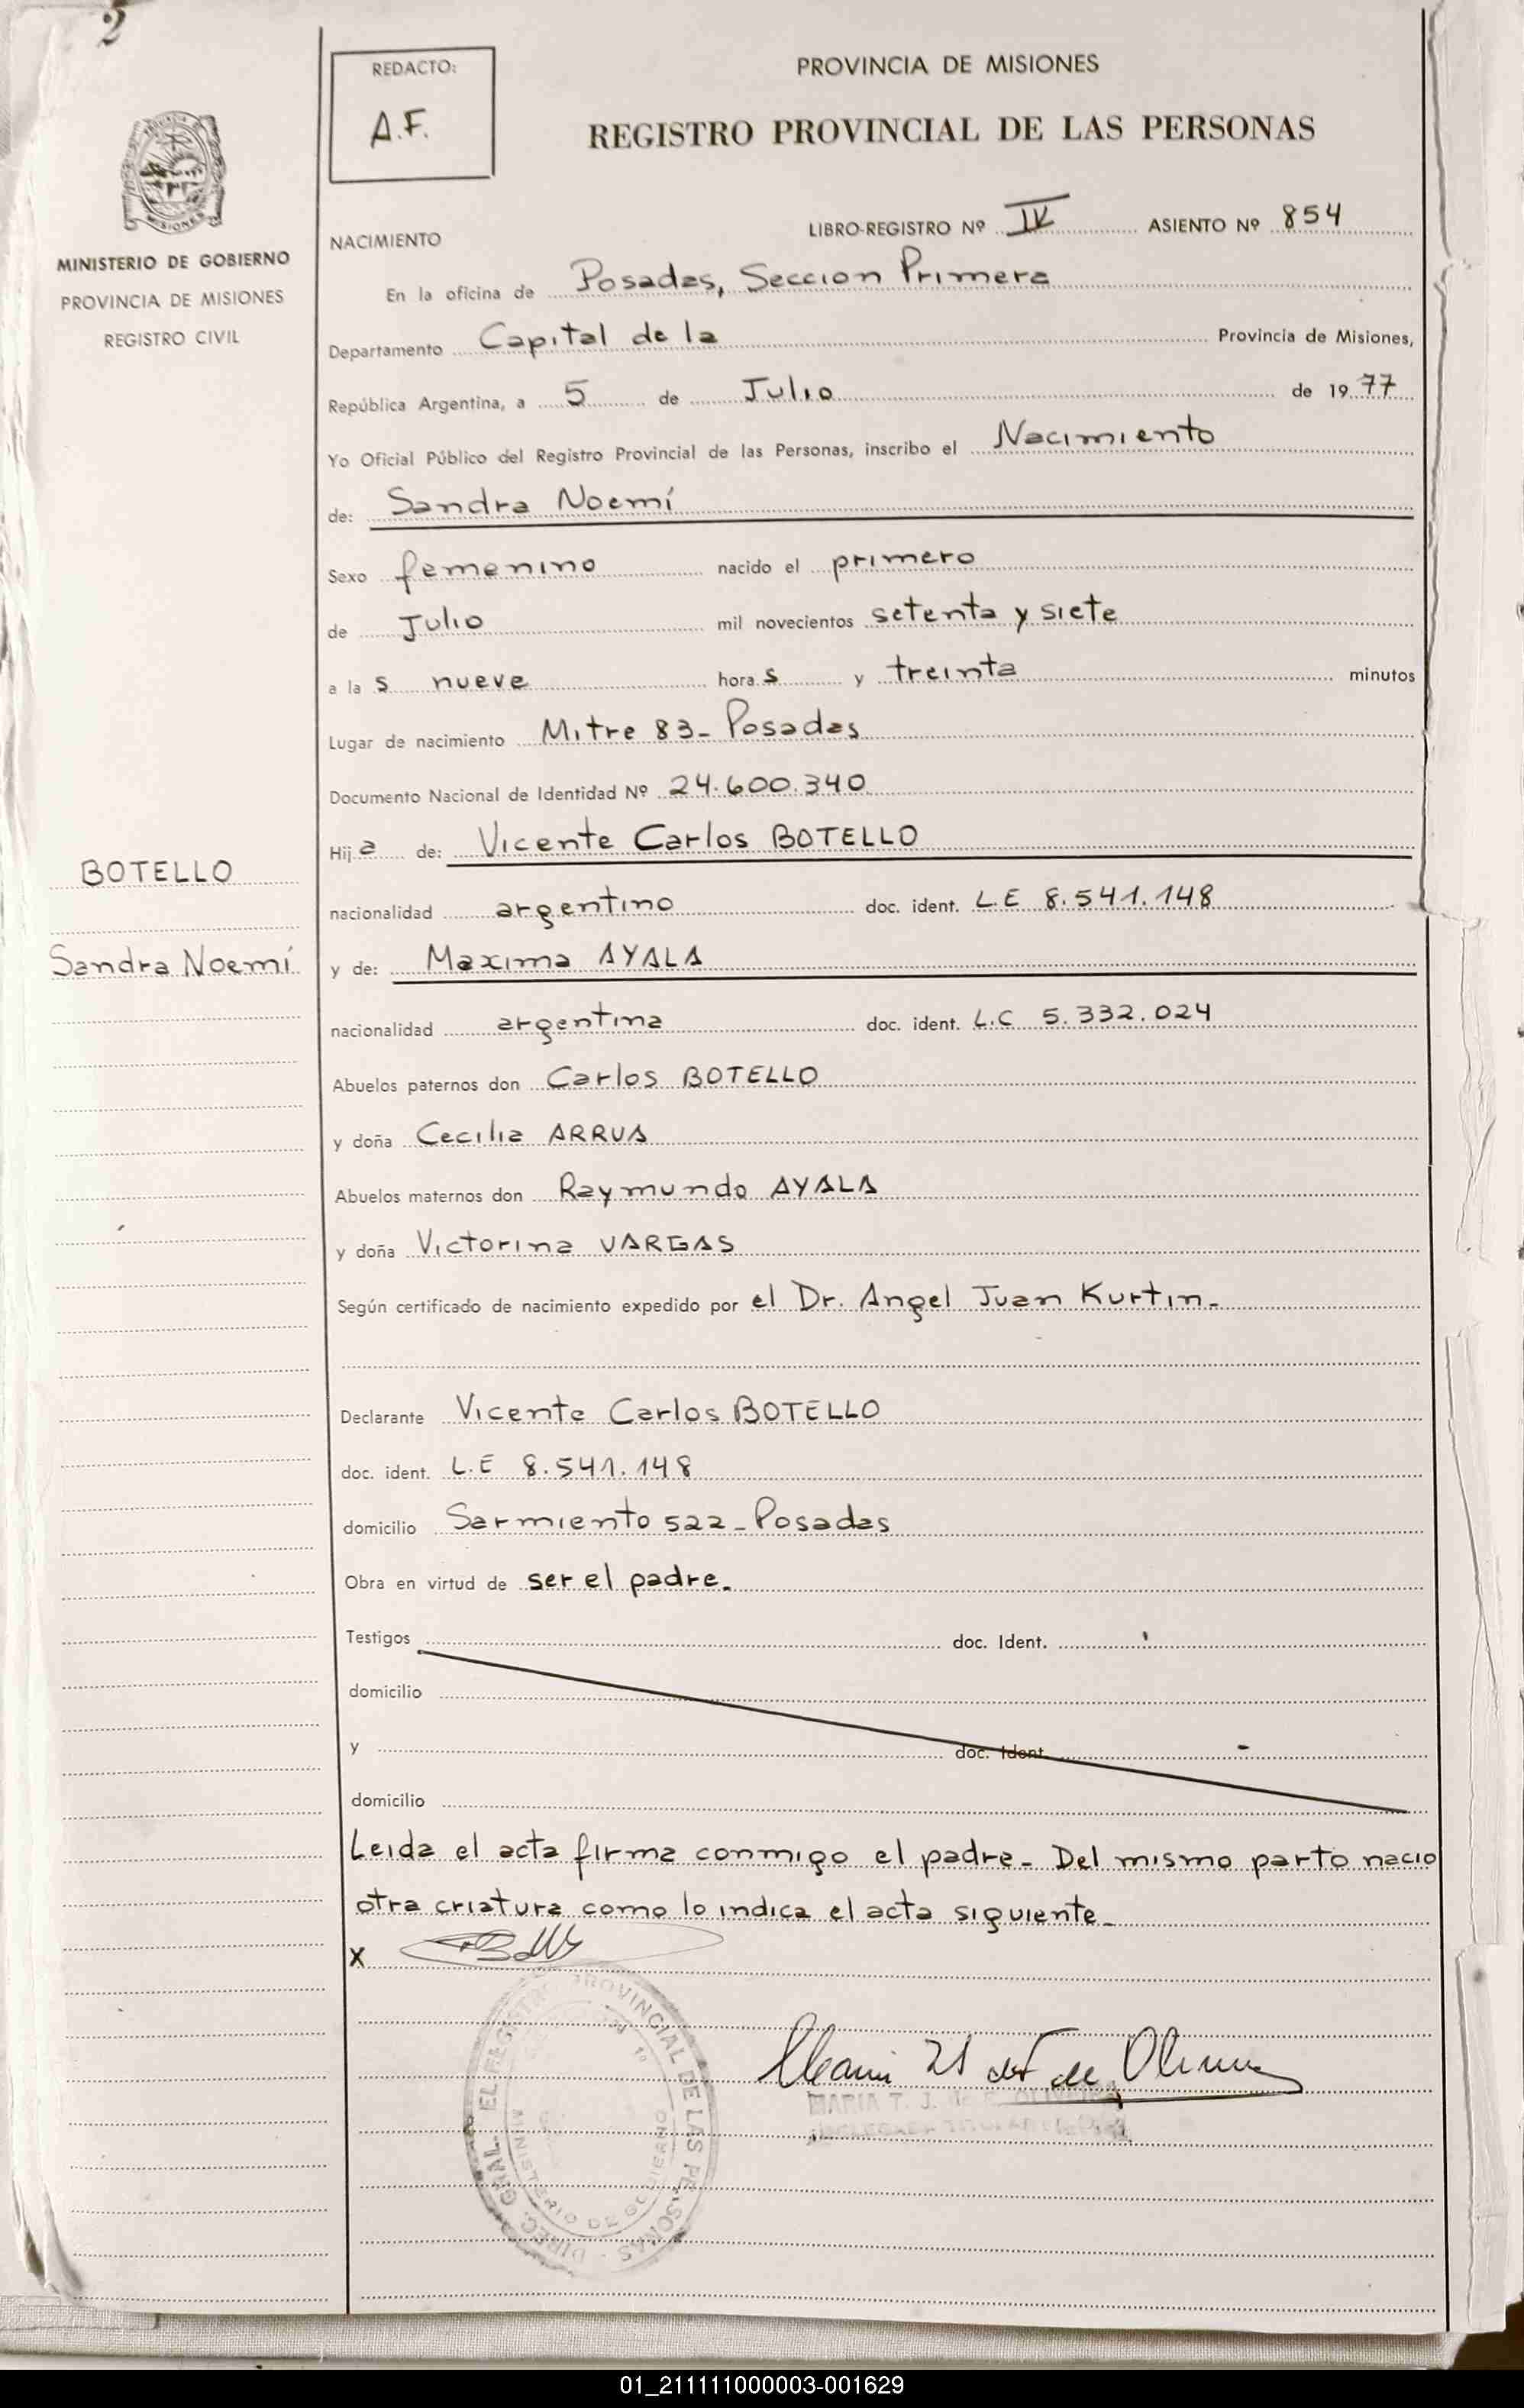 2
REDACTO:
A.F.
PROVINCIA DE MISIONES
REGISTRO PROVINCIAL DE LAS PERSONAS
MISIONES
MINISTERIO DE GOBIERNO
PROVINCIA DE MISIONES
REGISTRO CIVIL
LIBRO-REGISTRO Nº IV ASIENTO Nº 854
NACIMIENTO
En la oficina de Posadas, Seccion Primera
Departamento Capital de la Provincia de Misiones,
República Argentina, a 5 de Julio de 1977
Yo Oficial Público del Registro Provincial de las Personas, inscribo el Nacimiento
de: Sandra Noemí
Sexo femenino nacido el primero
de Julio mil novecientos setenta y siete
a la s nueve hora s y treinta minutos
Lugar de nacimiento Mitre 83- Posadas
Documento Nacional de Identidad Nº 24.600.340
Hij a de: Vicente Carlos BOTELLO
BOTELLO
nacionalidad argentino doc. ident. L.E 8.541.148
Sandra Noemí
y de: Maxima AYALA
nacionalidad argentina doc. ident. L.C 5.332.024
Abuelos paternos don Carlos BOTELLO
y doña Cecilia ARRUA
Abuelos maternos don Raymundo AYALA
y doña Victorina VARGAS
Según certificado de nacimiento expedido por el Dr. Angel Juan Kurtin.
Declarante Vicente Carlos BOTELLO
doc. ident. L.E 8.541.148
domicilio Sarmiento 522- Posadas
Obra en virtud de ser el padre.
Testigos doc. Ident.
domicilio
y doc. Ident.
domicilio
Leida el acta firma conmigo el padre- Del mismo parto nacio
otra criatura como lo indica el acta siguiente-
X
DIREC. GRAL. EL REGISTRO PROVINCIAL DE LAS PERSONAS
MINISTERIO DE GOBIERNO
MARIA T. J. de
01_211111000003-001629